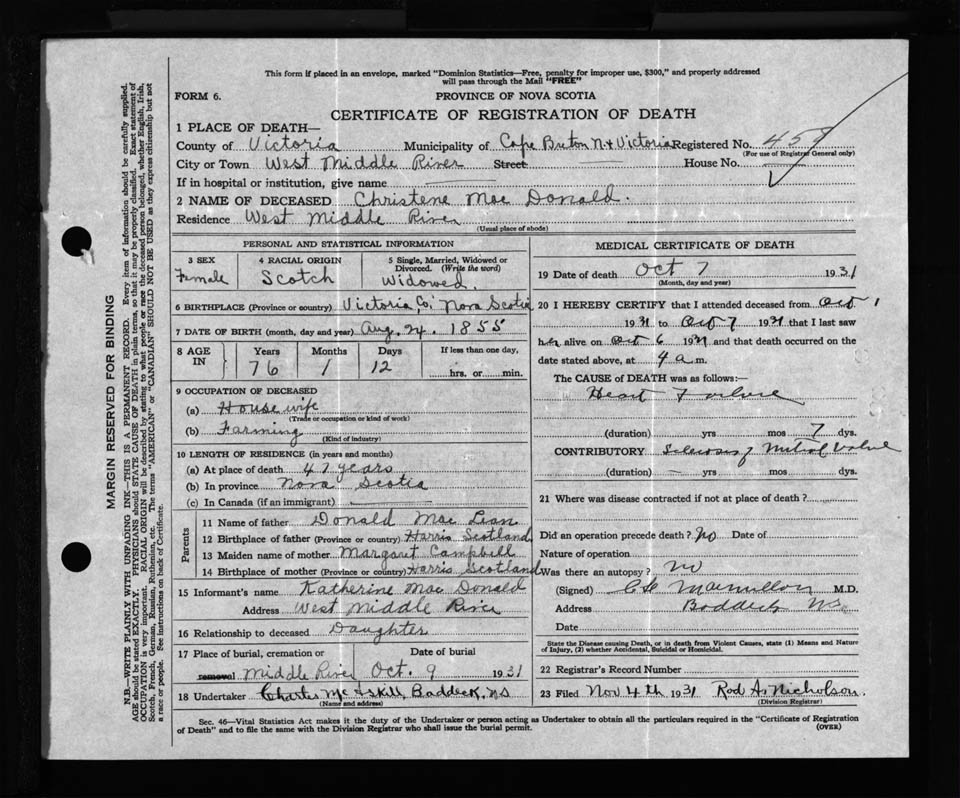 This form if placed in an envelope, marked "Dominion Statistics—Free, penalty for improper use, $300," and properly addressed
will pass through the Mail "FREE"
FORM 6. PROVINCE OF NOVA SCOTIA
CERTIFICATE OF REGISTRATION OF DEATH
1 PLACE OF DEATH—
County of Victoria Municipality of Cape Breton N & Victoria Registered No. 457
(For use of Registrar General only)
City or Town West Middle River Street House No.
If in hospital or institution, give name
2 NAME OF DECEASED Christene Mac Donald.
Residence West Middle River
(Usual place of abode)
PERSONAL AND STATISTICAL INFORMATION
3 SEX 4 RACIAL ORIGIN 5 Single, Married, Widowed or
Divorced. (Write the word)
Female Scotch Widowed.
6 BIRTHPLACE (Province or country) Victoria, Co, Nova Scotia
7 DATE OF BIRTH (month, day and year) Aug. 24. 1855
8 AGE IN Years Months Days If less than one day,
76 1 12 hrs. or min.
9 OCCUPATION OF DECEASED
(a) House wife
(Trade or occupation or kind of work)
(b) Farming
(Kind of industry)
10 LENGTH OF RESIDENCE (in years and months)
(a) At place of death 47 years
(b) In province Nova Scotia
(c) In Canada (if an immigrant)
Parents
11 Name of father Donald Mac Lean
12 Birthplace of father (Province or country) Harris Scotland
13 Maiden name of mother Margaret Campbell
14 Birthplace of mother (Province or country) Harris Scotland
15 Informant's name Katherine Mac Donald
Address West Middle River
16 Relationship to deceased Daughter
17 Place of burial, cremation or Date of burial
removal Middle River Oct. 9 1931
18 Undertaker Charles McAskill, Baddeck, NS
(Name and address)
MEDICAL CERTIFICATE OF DEATH
19 Date of death Oct 7 1931
(Month, day and year)
20 I HEREBY CERTIFY that I attended deceased from Oct 1
1931 to Oct 7 1931 that I last saw
her alive on Oct 6 1931 and that death occurred on the
date stated above, at 4 a m.
The CAUSE OF DEATH was as follows:—
Heart Failure
(duration) yrs mos 7 dys.
CONTRIBUTORY Sclerosis of Mitral Valve
(duration) — yrs mos dys.
21 Where was disease contracted if not at place of death?
Did an operation precede death? No Date of
Nature of operation
Was there an autopsy? No
(Signed) M.D.
Address Baddeck NS.
Date
State the Disease causing Death, or in death from Violent Causes, state (1) Means and Nature
of Injury, (2) whether Accidental, Suicidal or Homicidal.
22 Registrar's Record Number
23 Filed Nov 4th 1931 Rod A. Nicholson.
(Division Registrar)
Sec. 46—Vital Statistics Act makes it the duty of the Undertaker or person acting as Undertaker to obtain all the particulars required in the "Certificate of Registration
of Death" and to file the same with the Division Registrar who shall issue the burial permit. (OVER)
MARGIN RESERVED FOR BINDING
N.B.—WRITE PLAINLY WITH UNFADING INK—THIS IS A PERMANENT RECORD. Every item of information should be carefully supplied.
AGE should be stated EXACTLY. PHYSICIANS should STATE CAUSE OF DEATH in plain terms, so that it may be properly classified. Exact statement of
OCCUPATION is very important. RACIAL ORIGIN will be described by stating to what people or race the deceased person belonged, whether English, Irish,
Scotch, French, German, Russian, Ruthenian, etc. The terms "AMERICAN" or "CANADIAN" SHOULD NOT BE USED as they express citizenship but not
a race or people. See instructions on back of Certificate.